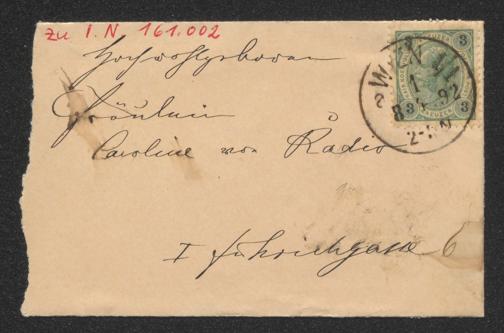 zu I.N 161.002
Hochwohlgeboren
Fräulein
Caroline von Radio
I Führichgasse 6
WIEN
1
8 92
2-3N
3 3
3 3